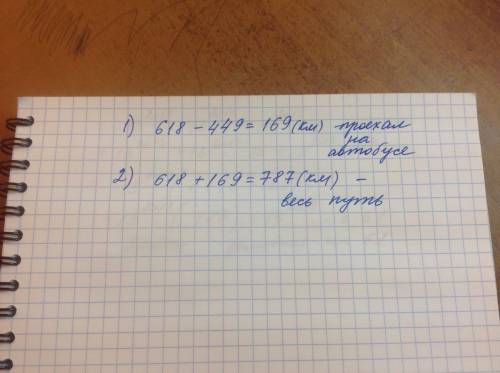 1) 618 - 449 = 169 (км) проехал
на
автобусе
2) 618 + 169 = 787 (км) -
весь путь